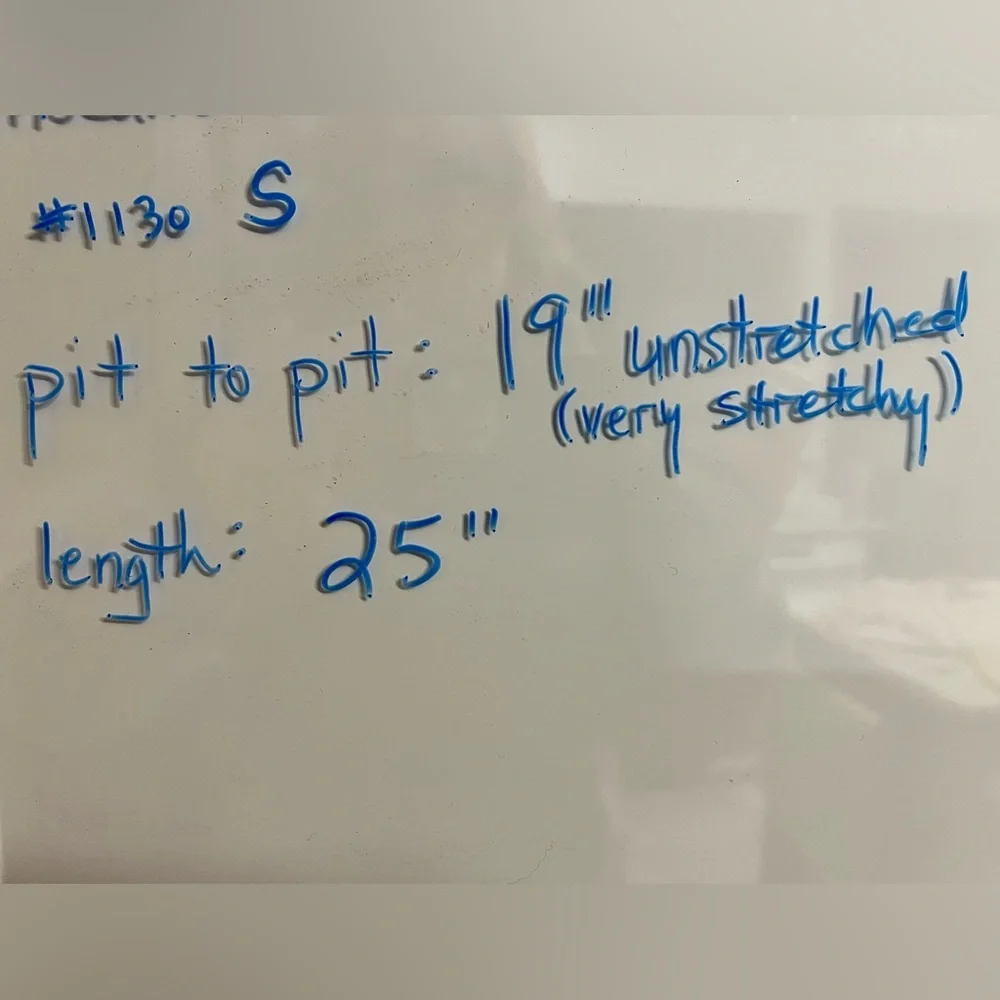 #1130 S
pit to pit: 19" unstretched
(very stretchy)
length: 25"